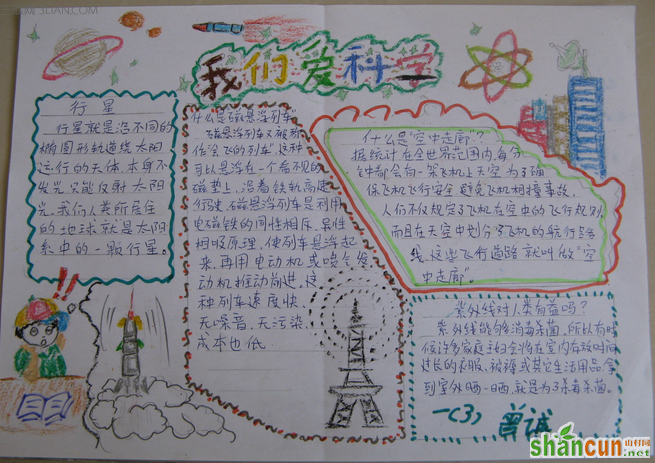 我们爱科学
行星
行星就是沿不同的
椭圆形轨道绕太阳
运行的天体,本身不
发光,只能反射太阳
光。我们人类所居住
的地球就是太阳
系中的一颗行星。
什么是"磁悬浮列车"
磁悬浮列车又被称
作"会飞的列车",这种
可以悬浮在一个看不见的
磁垫上,沿着铁轨高速
行驶。磁悬浮列车是利用
电磁铁的同性相斥、异性
相吸原理,使列车悬浮起
来,再用电动机或喷气发
动机推动前进。这
种列车速度快、
无噪音、无污染、
成本也低
什么是"空中走廊"?
据统计,在全世界范围内,每分
钟都会有一架飞机上天空,为了确
保飞机飞行安全,避免飞机相撞事故,
人们不仅规定了飞机在空中的飞行规则,
而且在天空中划分了飞机的航行路
线,这些飞行道路就叫做"空
中走廊"。
紫外线对人类有益吗?
紫外线能够消毒杀菌,所以有时
候许多家庭主妇会将在室内存放时间
过长的衣服、被褥或其它生活用品拿
到室外晒一晒,就是为了杀毒杀菌。
一(3) 曾诚
shancun
.net
山村网